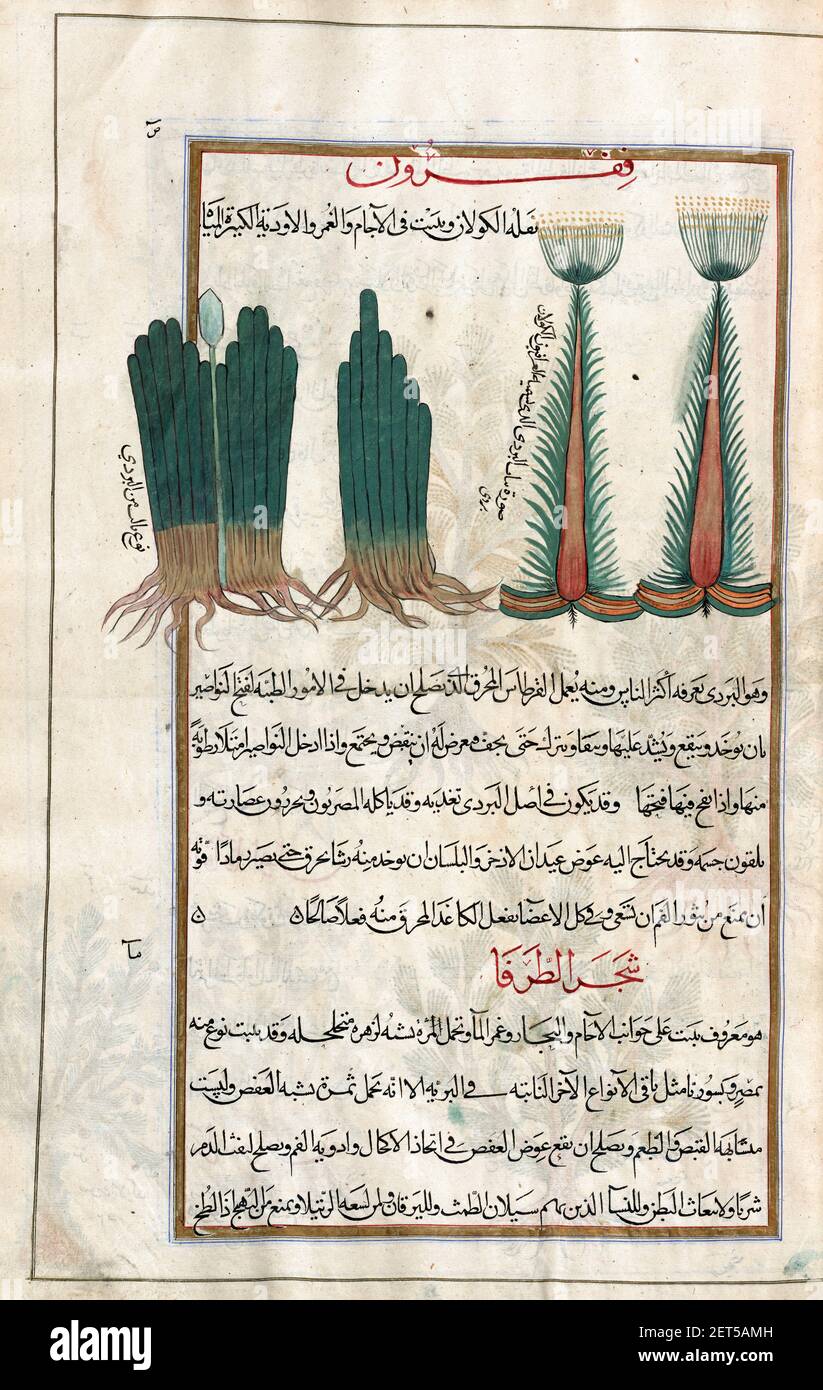 ققرون
نقله الكولان وينبت فى الاجام والغمر والاودية الكبيرة المياه
صورة نبات البردى الذى
بردى
نوع ثالث من البردي
وهو البردى يعرفه أكثر الناس ومنه يعمل القرطاس المحرق الذى يصلح ان يدخل فى الامور الطبيه لفتح النواصير
بان يوخد وينقع ويُشد عليها وينقا ويترك حتى يجف ومعرض له ان ينقبض ويجتمع واذا ادخل النواصير امتلا رطوبة
منها واذا انتفخ فيها فتحها وقد يكون فى اصل البردى تغديه وقد ياكله المصريون ويجردون عصارته و
يلقون جسمه وقد يحتاج اليه عوض عيدان الاذخر والبلسان ان يوخد منه رشا يحرق حتى يصير رمادًا قوته
ان يمنع من بثور الفم ان تسعى وفى كل الاعضآ يفعل الكاغد المحرق منه فعلاً صالحًا
شجر الطرفا
هو معروف ينبت على جوانب الاجام والبحار وغمر المآ وتحمل ثمرة تشبه لزهره متخلخله وقد ينبت نوع منه
بمصر وبسوريا مثل باقى الانواع الاخر النابته فى البريه الا انه تحمل ثمرة تشبه العفص وليست
مشابهة القبض والطعم ويصلح ان يقع عوض العفص فى اتخاذ الاكحال وادويه الفم ويصلح لنفث الدم
شربًا ولانبعاث البطن وللنسآ الذين بهم سيلان الطمث ولليرقان ولمن لسعه الرتيلا ويمنع من الهيج اذا طبخ
alamy
Image ID: 2ET5AMH
www.alamy.com